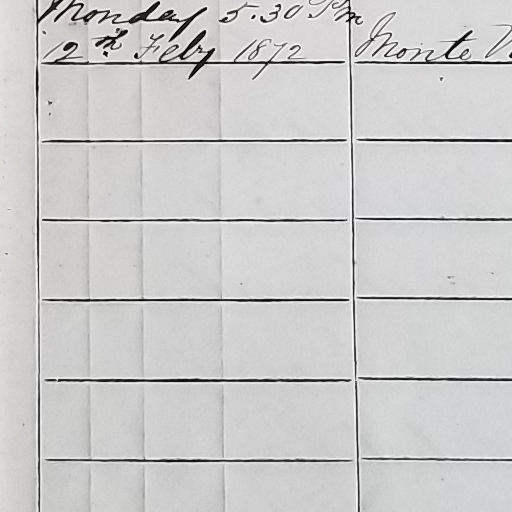 Monday 5.30 Pm
12th Feby 1872 Monte